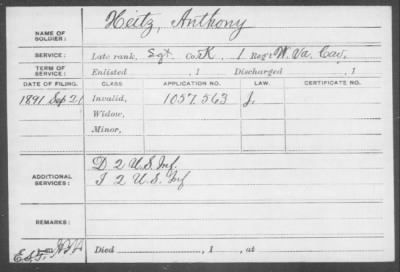 NAME OF SOLDIER: Heitz, Anthony
SERVICE: Late rank, Sgt. Co. K, 1 Reg't W. Va. Cav.
TERM OF SERVICE: Enlisted , 1 Discharged , 1
DATE OF FILING. CLASS APPLICATION NO. LAW. CERTIFICATE NO.
1891 Sep 21 Invalid, 1057.563 J.
Widow,
Minor,
ADDITIONAL SERVICES: D. 2 U.S. Inf.
I 2 U.S. Inf
REMARKS:
Died , 1 , at